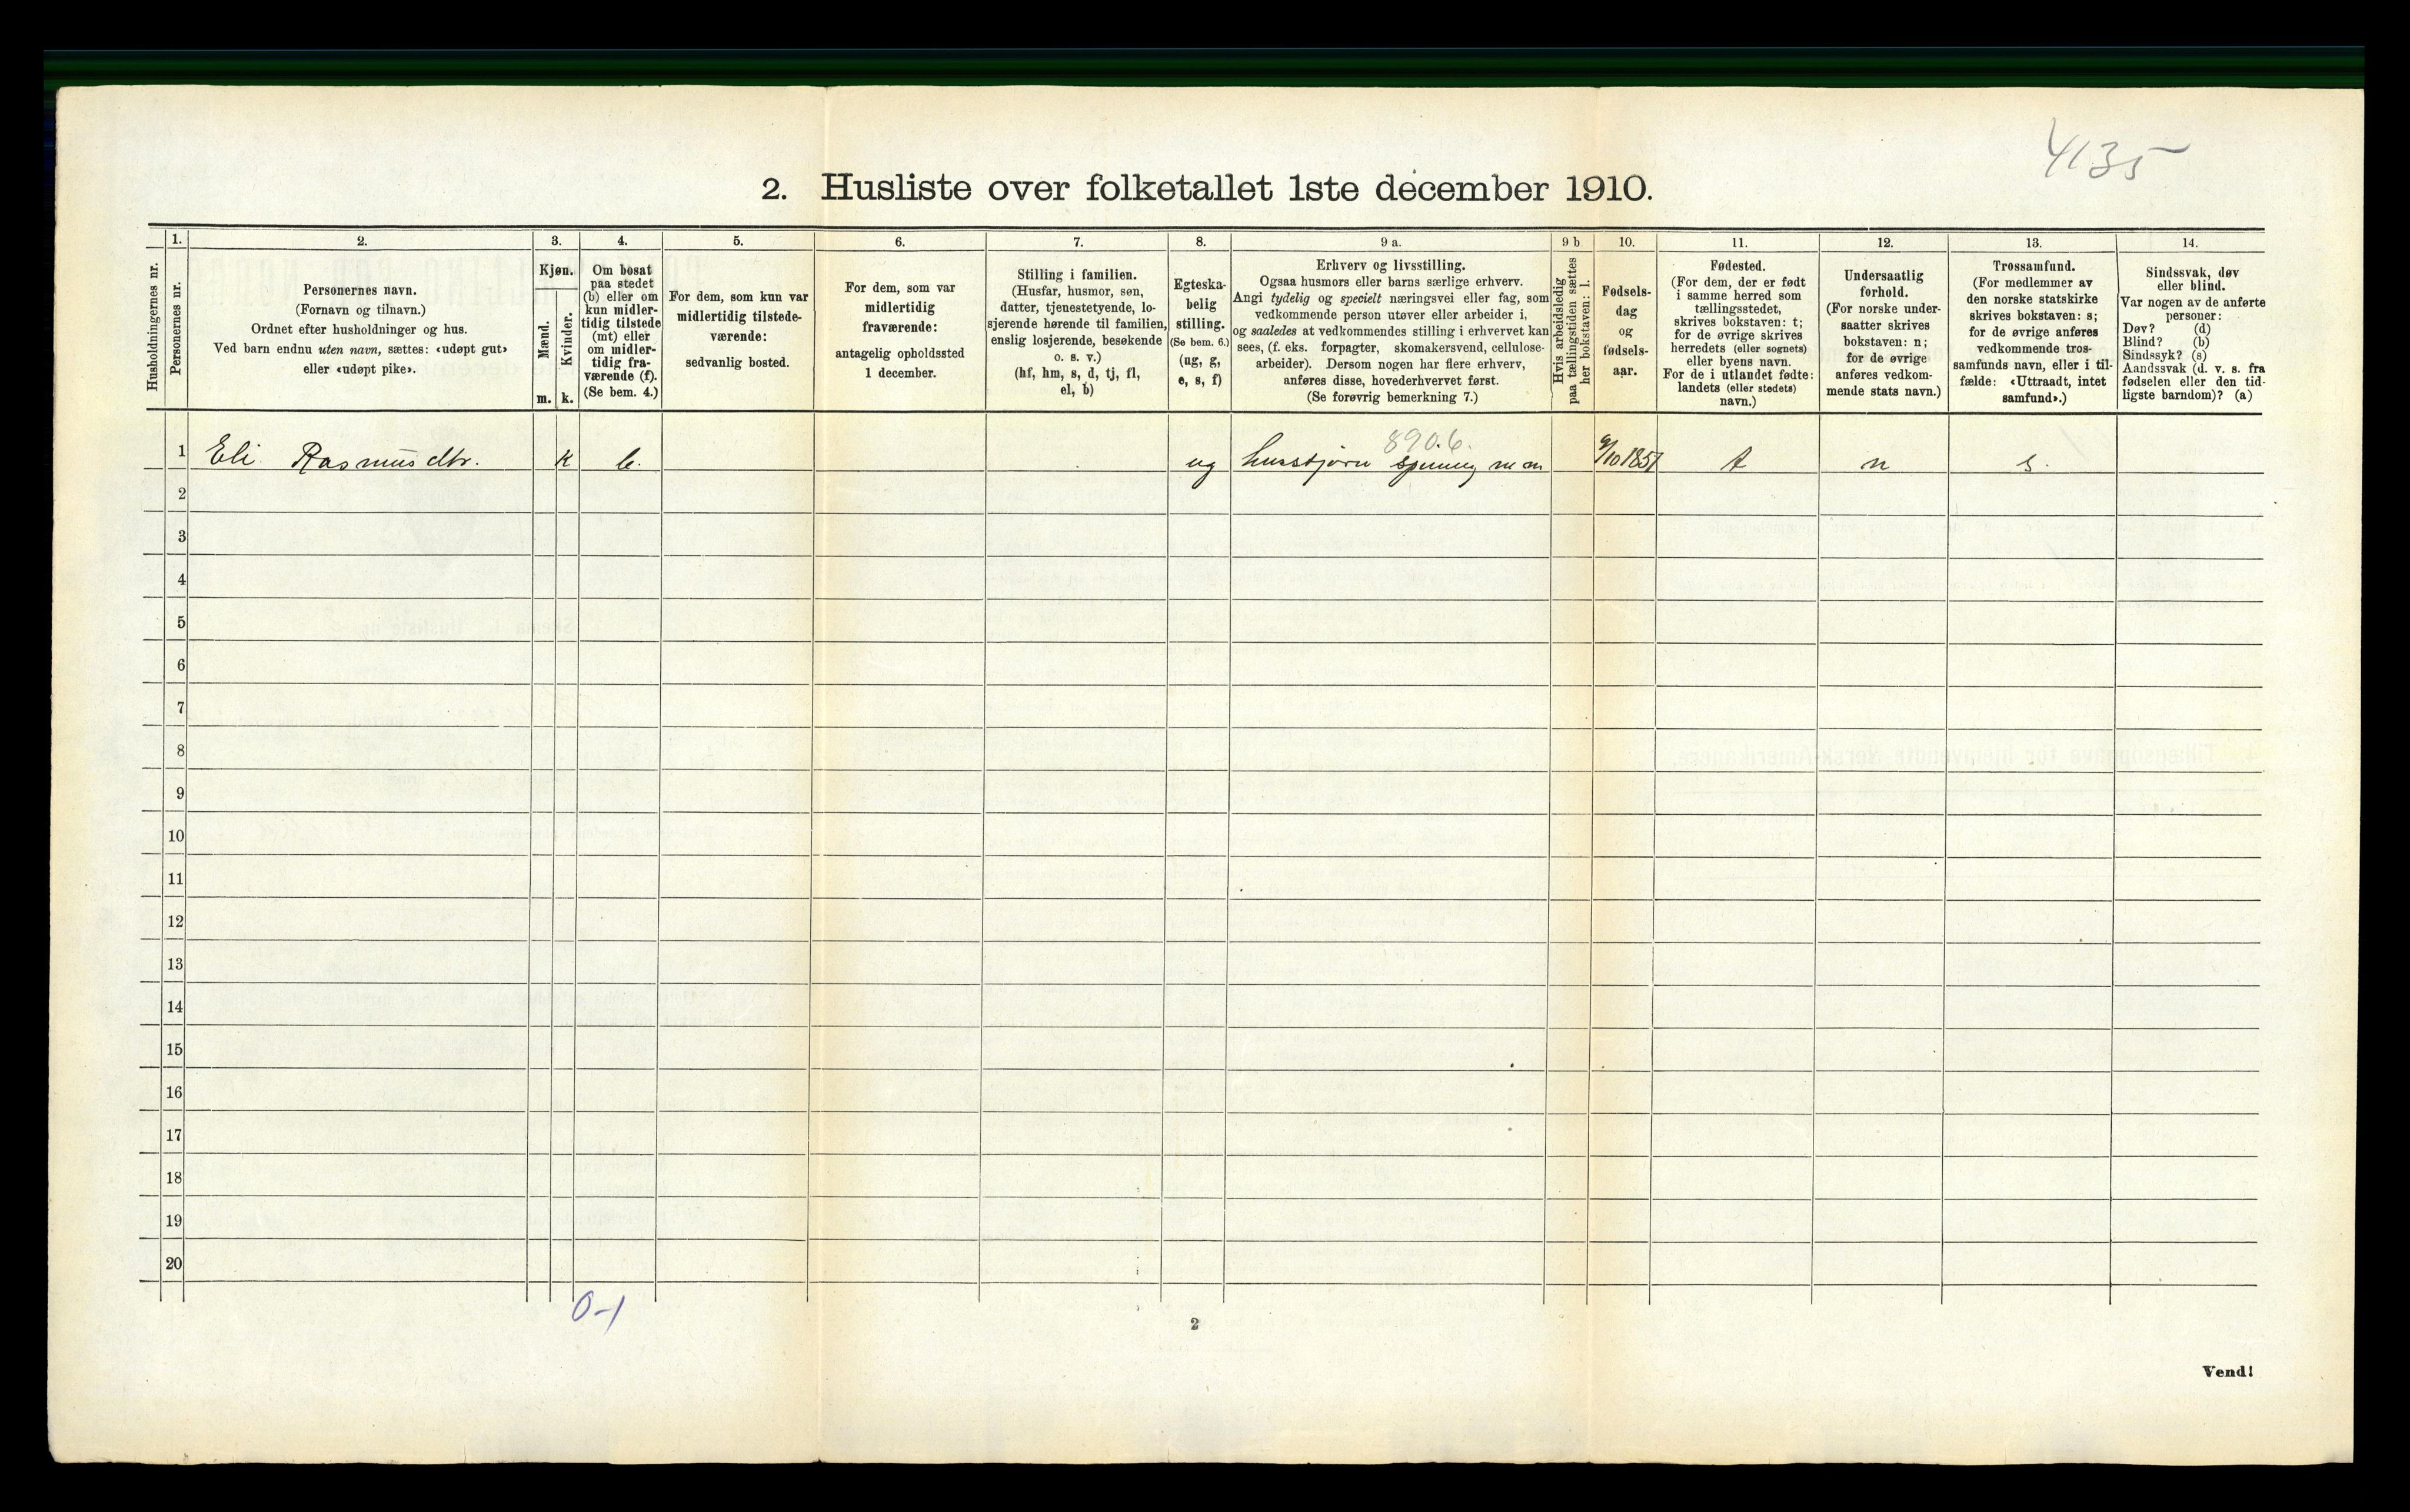 4135
2. Husliste over folketallet 1ste december 1910.
Husholdningernes nr.
1.
Personernes nr.
2.
Personernes navn.
(Fornavn og tilnavn.)
Ordnet efter husholdninger og hus.
Ved barn endnu uten navn, sættes: «udøpt gut»
eller «udøpt pike».
3.
Kjøn.
Mænd.
Kvinder.
m. k.
4.
Om bosat
paa stedet
(b) eller om
kun midler-
tidig tilstede
(mt) eller
om midler-
tidig fra-
værende (f).
(Se bem. 4.)
5.
For dem, som kun var
midlertidig tilstede-
værende:
sedvanlig bosted.
6.
For dem, som var
midlertidig
fraværende:
antagelig opholdssted
1 december.
7.
Stilling i familien.
(Husfar, husmor, søn,
datter, tjenestetyende, lo-
sjerende hørende til familien,
enslig losjerende, besøkende
o. s. v.)
(hf, hm, s, d, tj, fl,
el, b)
8.
Egteska-
belig
stilling.
(Se bem. 6.)
(ug, g,
e, s, f)
9 a.
Erhverv og livsstilling.
Ogsaa husmors eller barns særlige erhverv.
Angi tydelig og specielt næringsvei eller fag, som
vedkommende person utøver eller arbeider i,
og saaledes at vedkommendes stilling i erhvervet kan
sees, (f. eks. forpagter, skomakersvend, cellulose-
arbeider). Dersom nogen har flere erhverv,
anføres disse, hovederhvervet først.
(Se forøvrig bemerkning 7.)
9 b
Hvis arbeidsledig
paa tællingstiden sættes
her bokstaven: l.
10.
Fødsels-
dag
og
fødsels-
aar.
11.
Fødested.
(For dem, der er født
i samme herred som
tællingsstedet,
skrives bokstaven: t;
for de øvrige skrives
herredets (eller sognets)
eller byens navn.
For de i utlandet fødte:
landets (eller stedets)
navn.)
12.
Undersaatlig
forhold.
(For norske under-
saatter skrives
bokstaven: n;
for de øvrige
anføres vedkom-
mende stats navn.)
13.
Trossamfund.
(For medlemmer av
den norske statskirke
skrives bokstaven: s;
for de øvrige anføres
vedkommende tros-
samfunds navn, eller i til-
fælde: «Uttraadt, intet
samfund».)
14.
Sindssvak, døv
eller blind.
Var nogen av de anførte
personer:
Døv? (d)
Blind? (b)
Sindssyk? (s)
Aandssvak (d. v. s. fra
fødselen eller den tid-
ligste barndom)? (a)
890.6.
1 Eli Rasmusdtr. k b. ug 9/10 1851 t n s.
2
3
4
5
6
7
8
9
10
11
12
13
14
15
16
17
18
19
20
0-1
2
Vend!